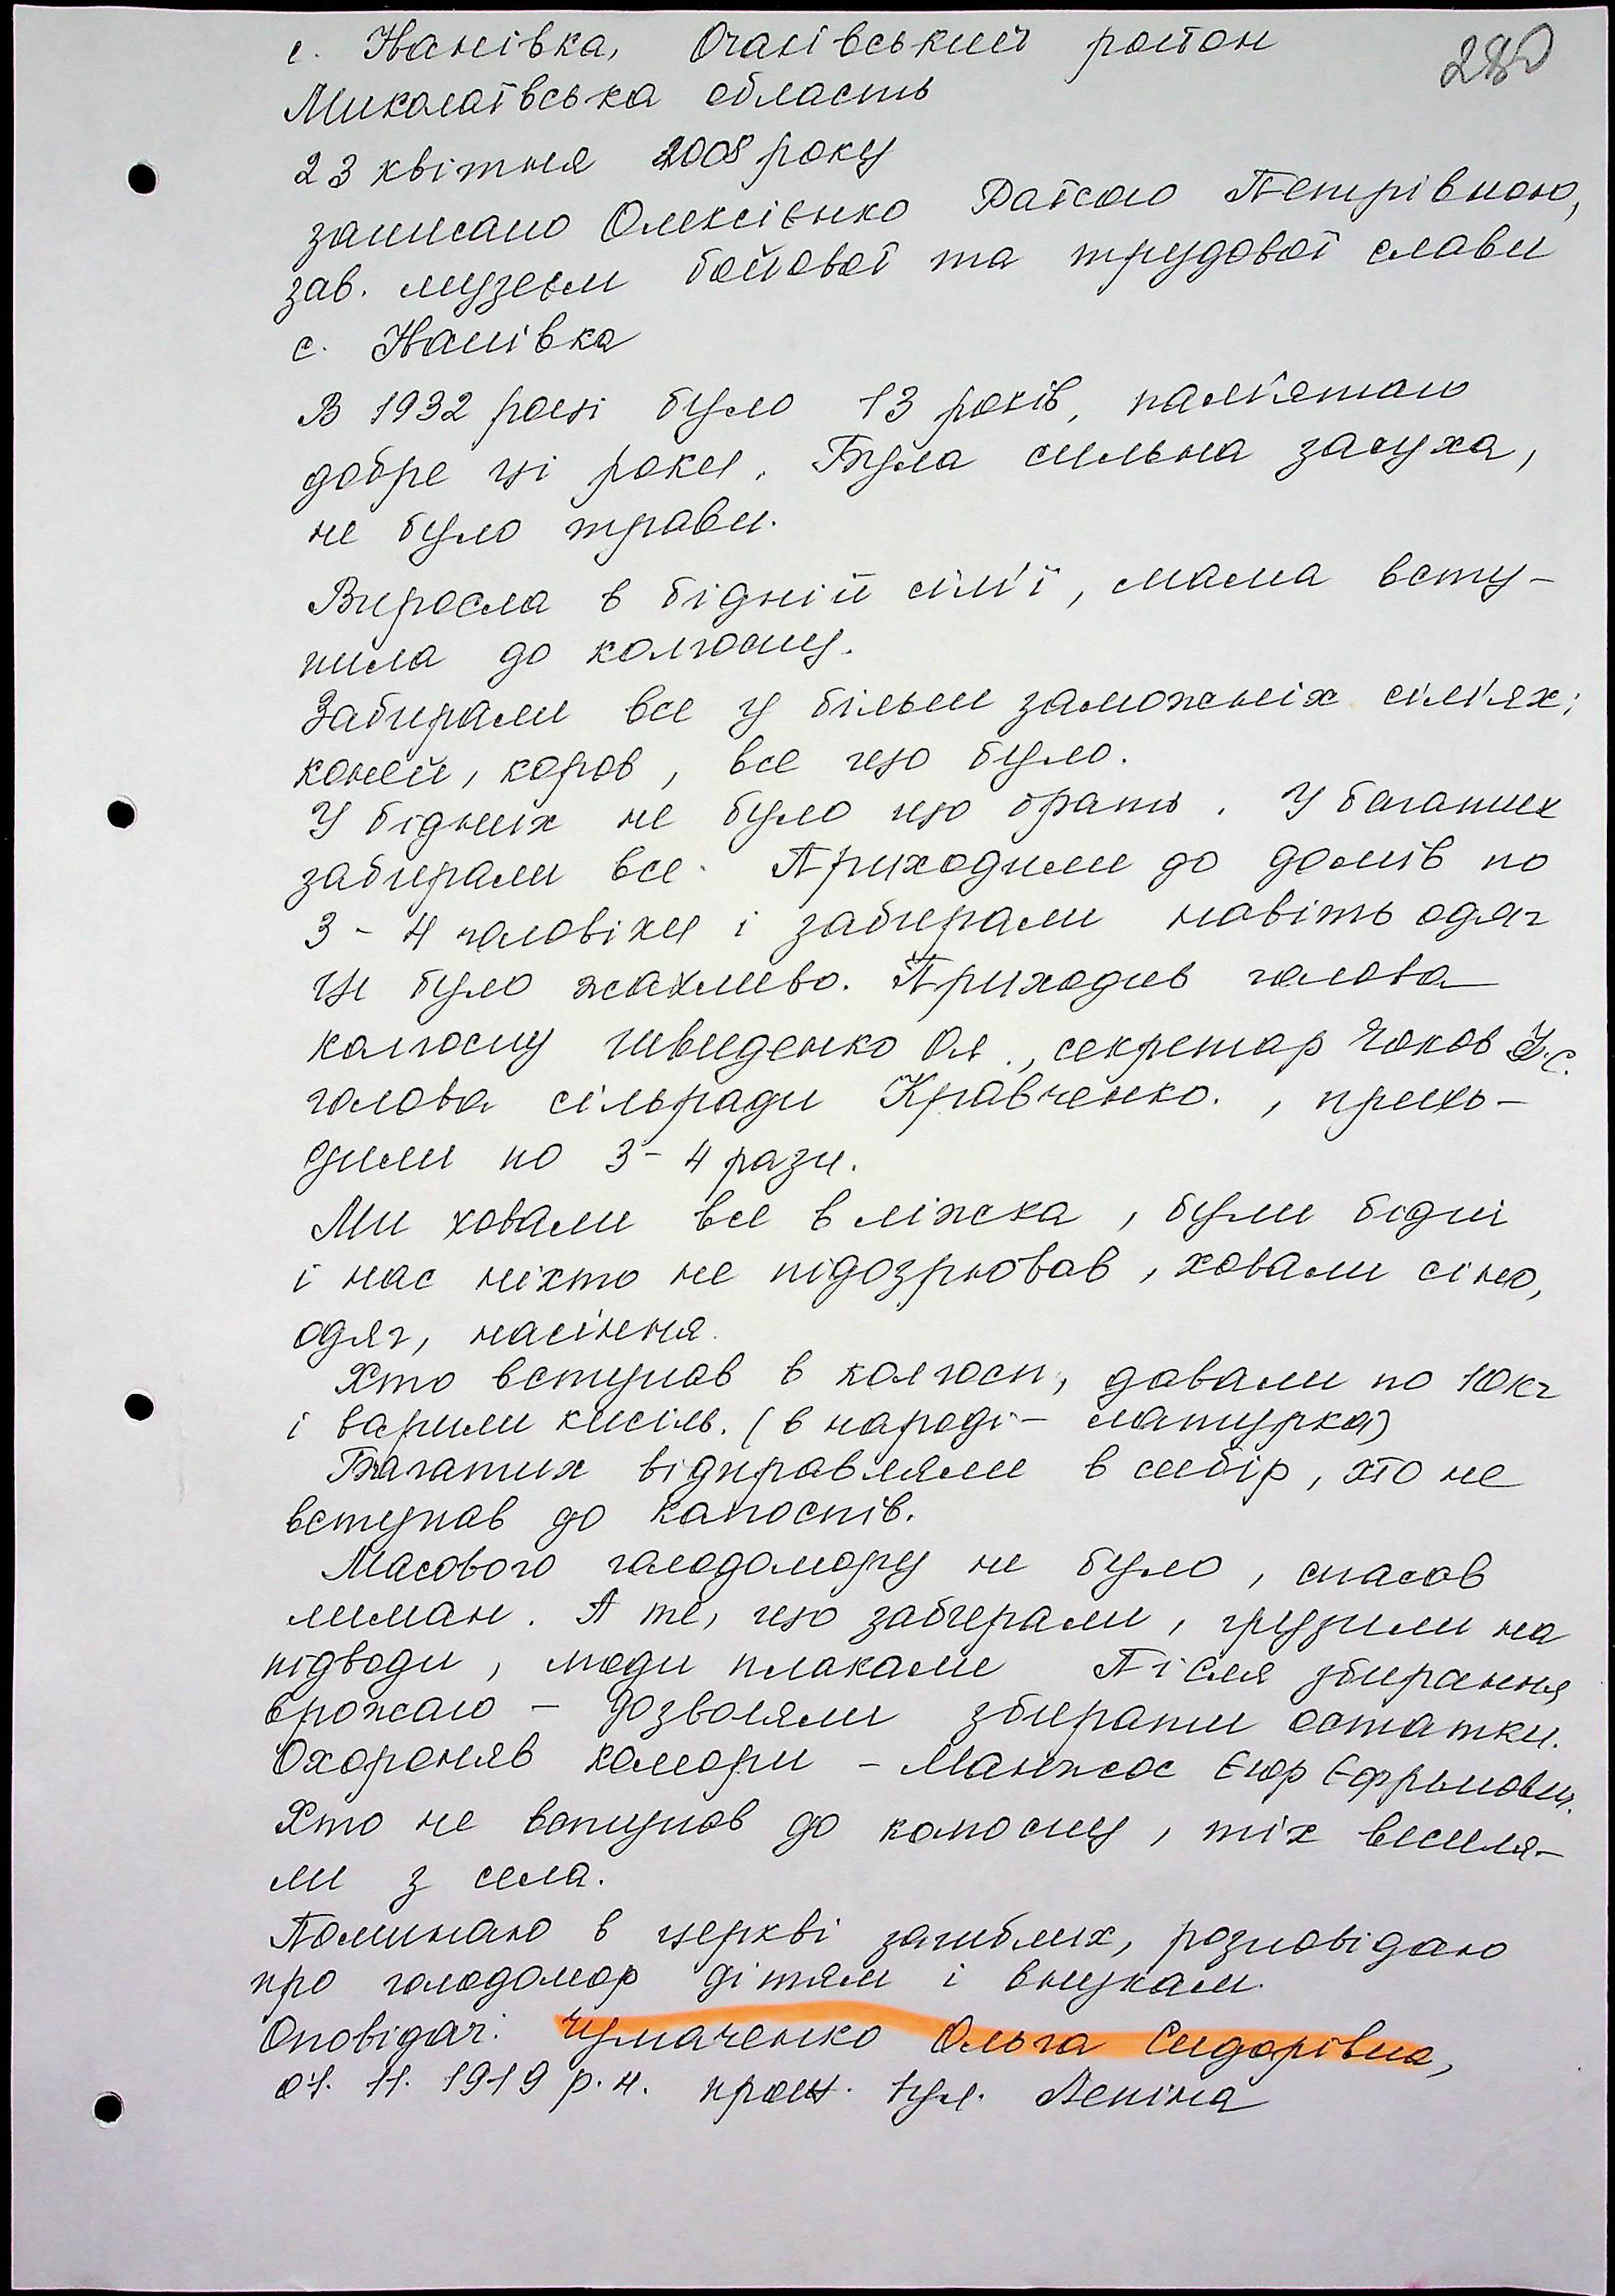 280
с. Іванівка, Очаківський район
Миколаївська область
23 квітня 2008 року
записано Олексієнко Раїсою Петрівною,
зав. музеєм бойової та трудової слави
с. Іванівка
В 1932 році було 13 років, пам'ятаю
добре ці роки. Була сильна засуха,
не було трави.
Виросла в бідній сім'ї, мама всту-
пила до колгоспу.
Забирали все у більш заможніх сім'ях;
коней, коров, все що було.
У бідних не було що брать. У багатих
забирали все. Приходили до домів по
3 - 4 чоловіки і забирали навіть одяг
це було жахливо. Приходив голова
колгоспу Швиденко Оля., секретар Чоков
голова сільради Кравченко., прихо-
дили по 3 - 4 рази.
Ми ховали все в ліжка, були бідні
і нас ніхто не підозрював, ховали сіно,
одяг, насіння.
Хто вступав в колгосп, давали по 10 кг
і варили кисіль. (в народі - матурка)
Багатих відправляли в сибір, хто не
вступав до колгоспів.
Масового голодомору не було, спасав
лиман. А те, що забирали, грузили на
підводи, люди плакали Після збирання
врожаю - дозволяли збирати остатки.
Охороняв комори - Манжос Єгор
Хто не вступав до колгоспу, тіх виселя-
ли з села.
Поминаю в церкві загиблих, розповідаю
про голодомор дітям і внукам.
Оповідач: Чумаченко Ольга Сидорівна,
01. 11. 1919 р. н. прож. вул. Леніна